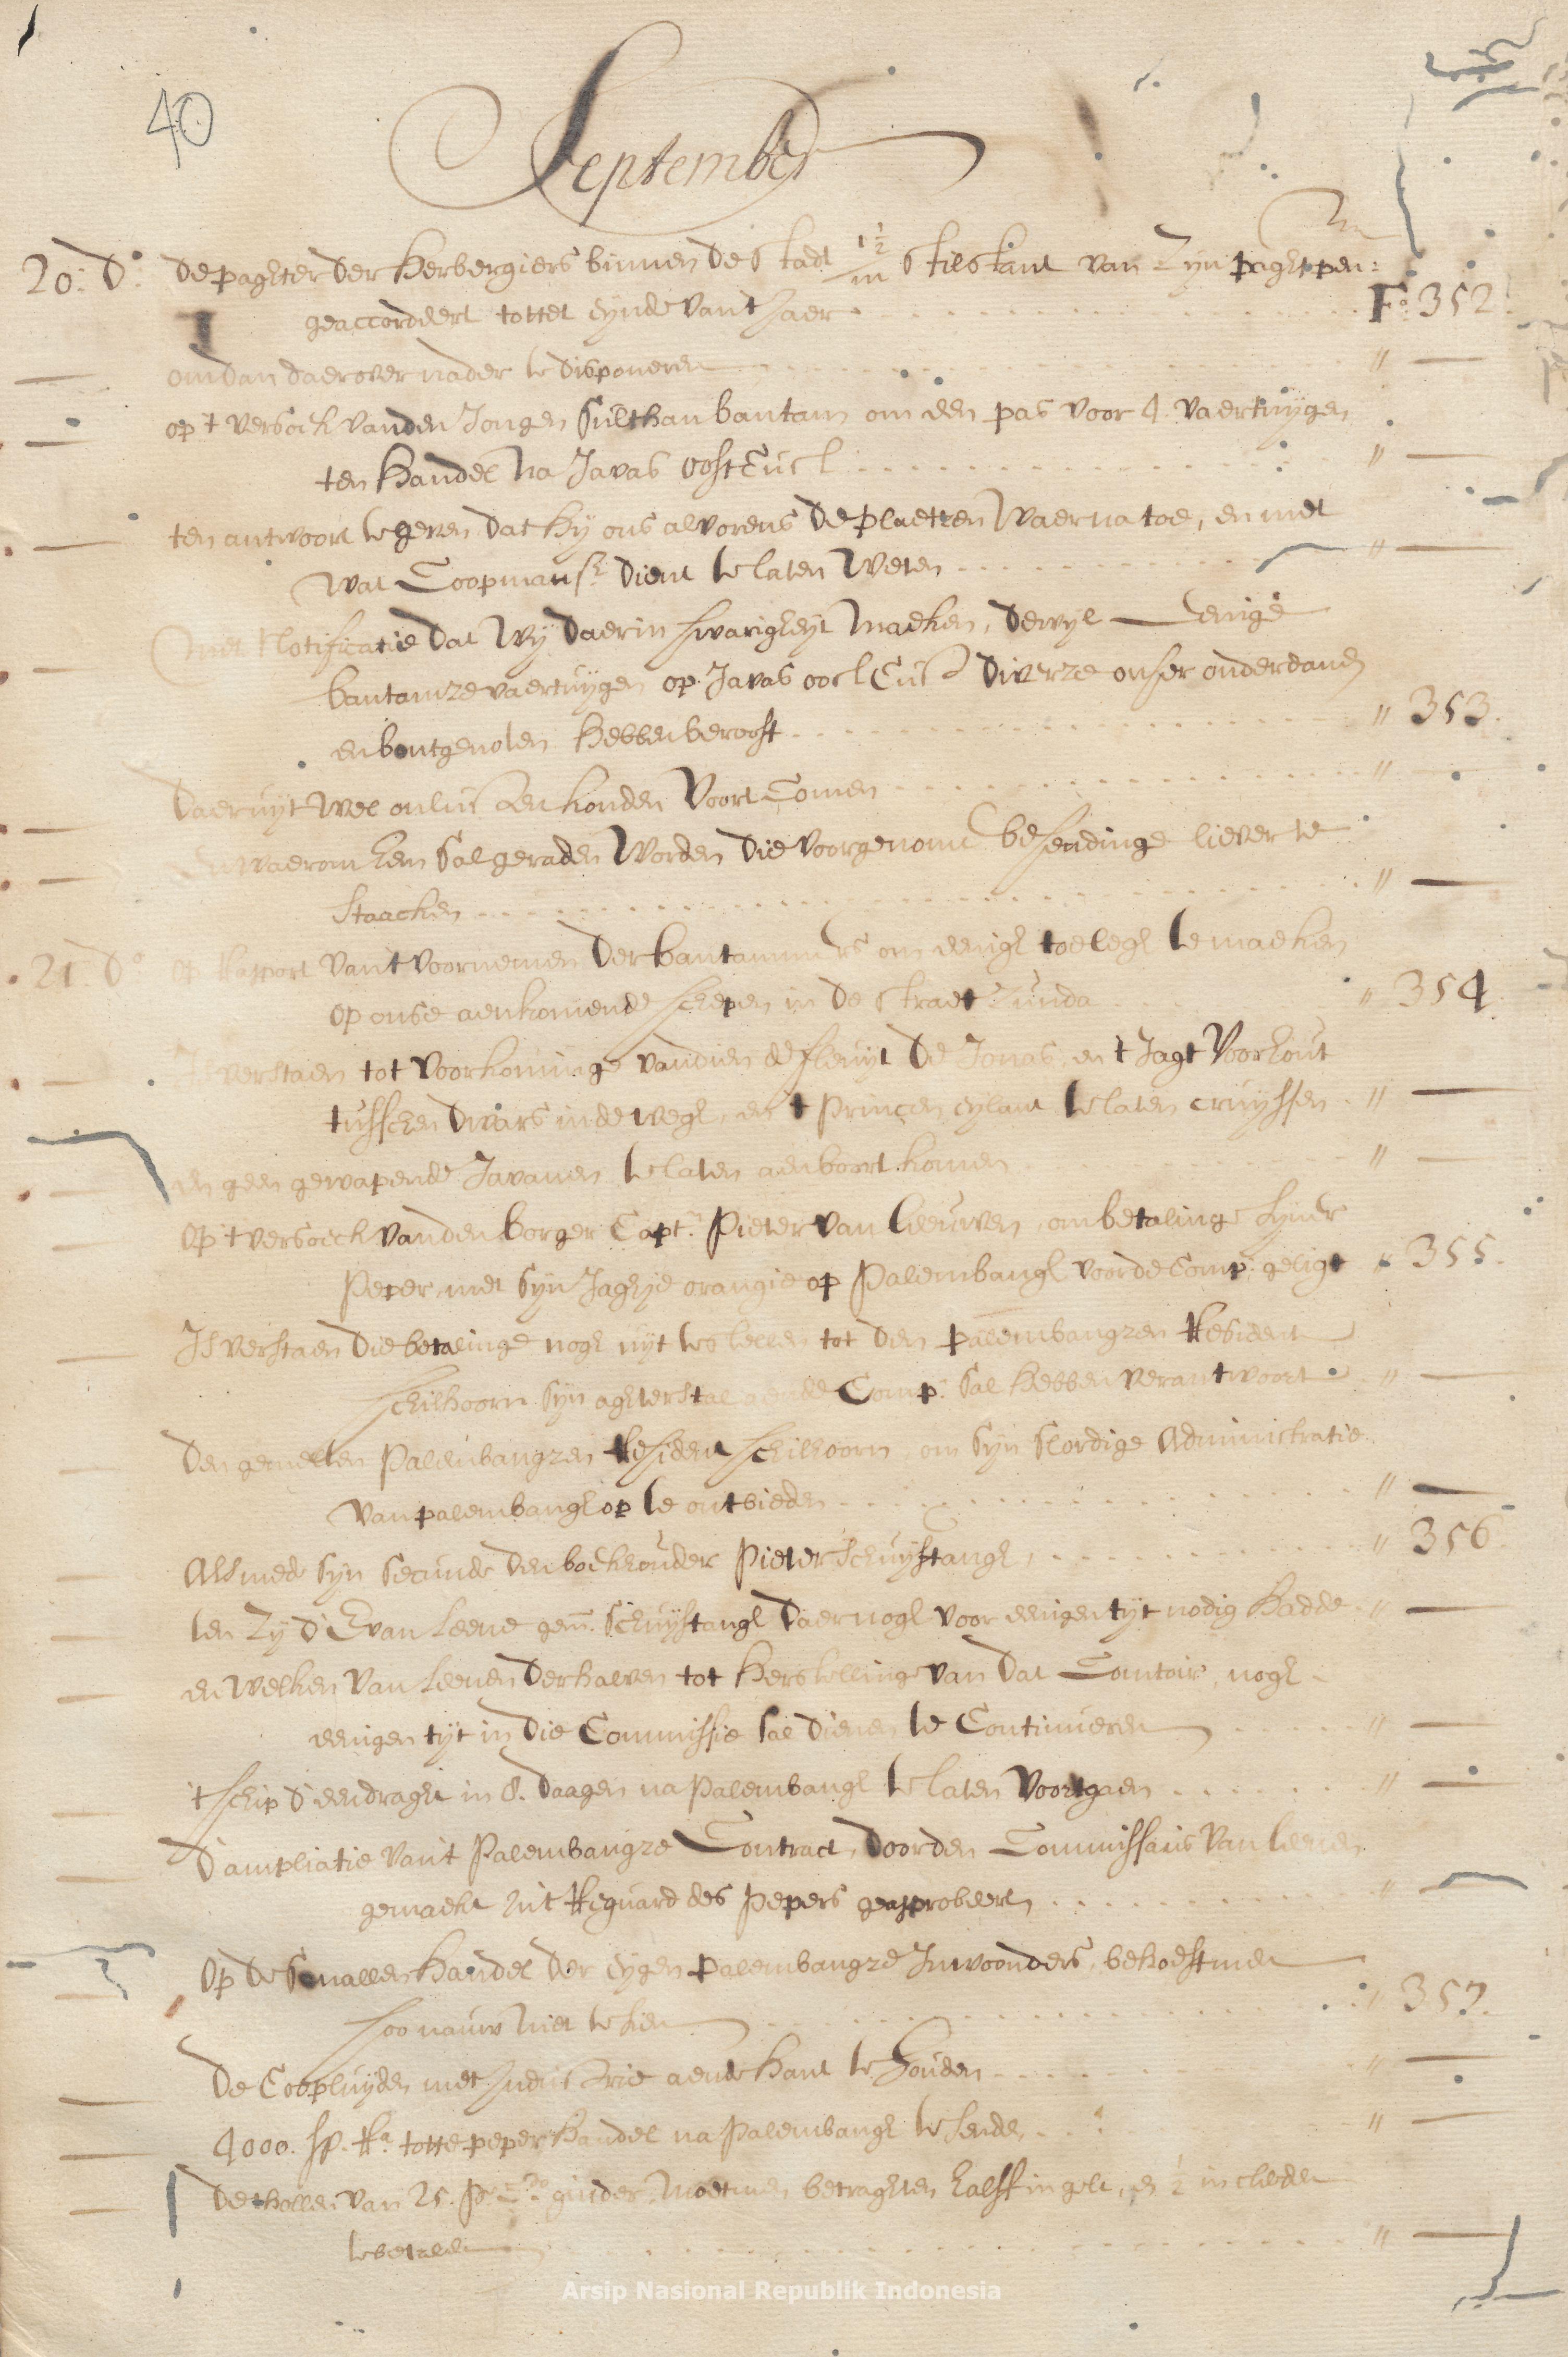 40
September
20: do: de paghter der Herbergiers binnen de Stadt 1½/m stilstant van Zijn paghtpen:
geaccordeert tottet eijnde van 't Jaer Fo: 352
om dan daerover nader te disponeren "
op 't versoeck vanden Jongen Sulthan bantam om een pas voor 4. vaertuijgen
ten Handel na Javas oost Cust "
ten antwoort te geven dat hij ons alvorens de plaetzen waer na toe, en met
wat Coopmansz. dient te laten weten "
met Notificatie dat wij daerin swarigheijt maeken, dewijl eenige
bantamze vaertuijgen op Javas oost Cust diverze onser onderdanen
en bontgenoten hebben berooft " 353.
daer uijt wel onlusten konden voort Comen "
en waerom hem sal geraden worden die voorgenome besendinge liever te
staacken "
21. do op Rapport van 't voornemen der bantammers om eenigh toelegh te maeken
op onse aenkomende schepen in de straet Zunda " 354.
Is verstaen tot voorkominge van dien de fleuijt de Jonas, en 't Jagt Voorhout
tusschen dwars inde wegh, en 't Princen eijlant te laten cruijssen "
en geen gewapende Javanen te laten aen boort komen "
op 't versoeck vanden borger Capt. Pieter van Leeuwen, om betalinge sijner
Peper, met sijn Jaghje orangie op Palembangh voor de Comp: geligt " 355.
Is verstaen die betalinge nogh uijt te stellen tot den palembangzen Resident
schilhoorn sijn aghterstal aende Comp: sal hebben verantwoort "
den gemelten Palembangzen Resident schilhoorn om sijn slordige Administratie
van palembangh op te ontbieden "
Als mede sijn secunde den boeckhouder Pieter schuijftangh, " 356.
ten Zij d' E van Leene gem. schuijftangh daer nogh voor eenigen tijt nodig hadde "
en welken van Leenen derhalven tot herstellinge van dat Comtoir, nogh
eenigen tijt in die Commissie sal dienen te Continueren "
't schip d' eendraght in 8. daagen na Palembangh te laten voortgaen "
d' ampliatie van 't Palembangze Contract, door den Commissaris van Leenen
gemaekt uit Reguard des Pepers geapprobeert "
Op de smallen handel der eijgen palembangze Inwoonders, behoeft men
soo nauw niet te sien " 357.
De Coopluijden met Industrie aende hant te houden "
4000. sp. Ra. totte peper handel na Palembangh te senden "
de thollen van 25. ginder, moet men betraghten halff in gelt, en ½ in cleeden
te betalen "
Arsip Nasional Republik Indonesia